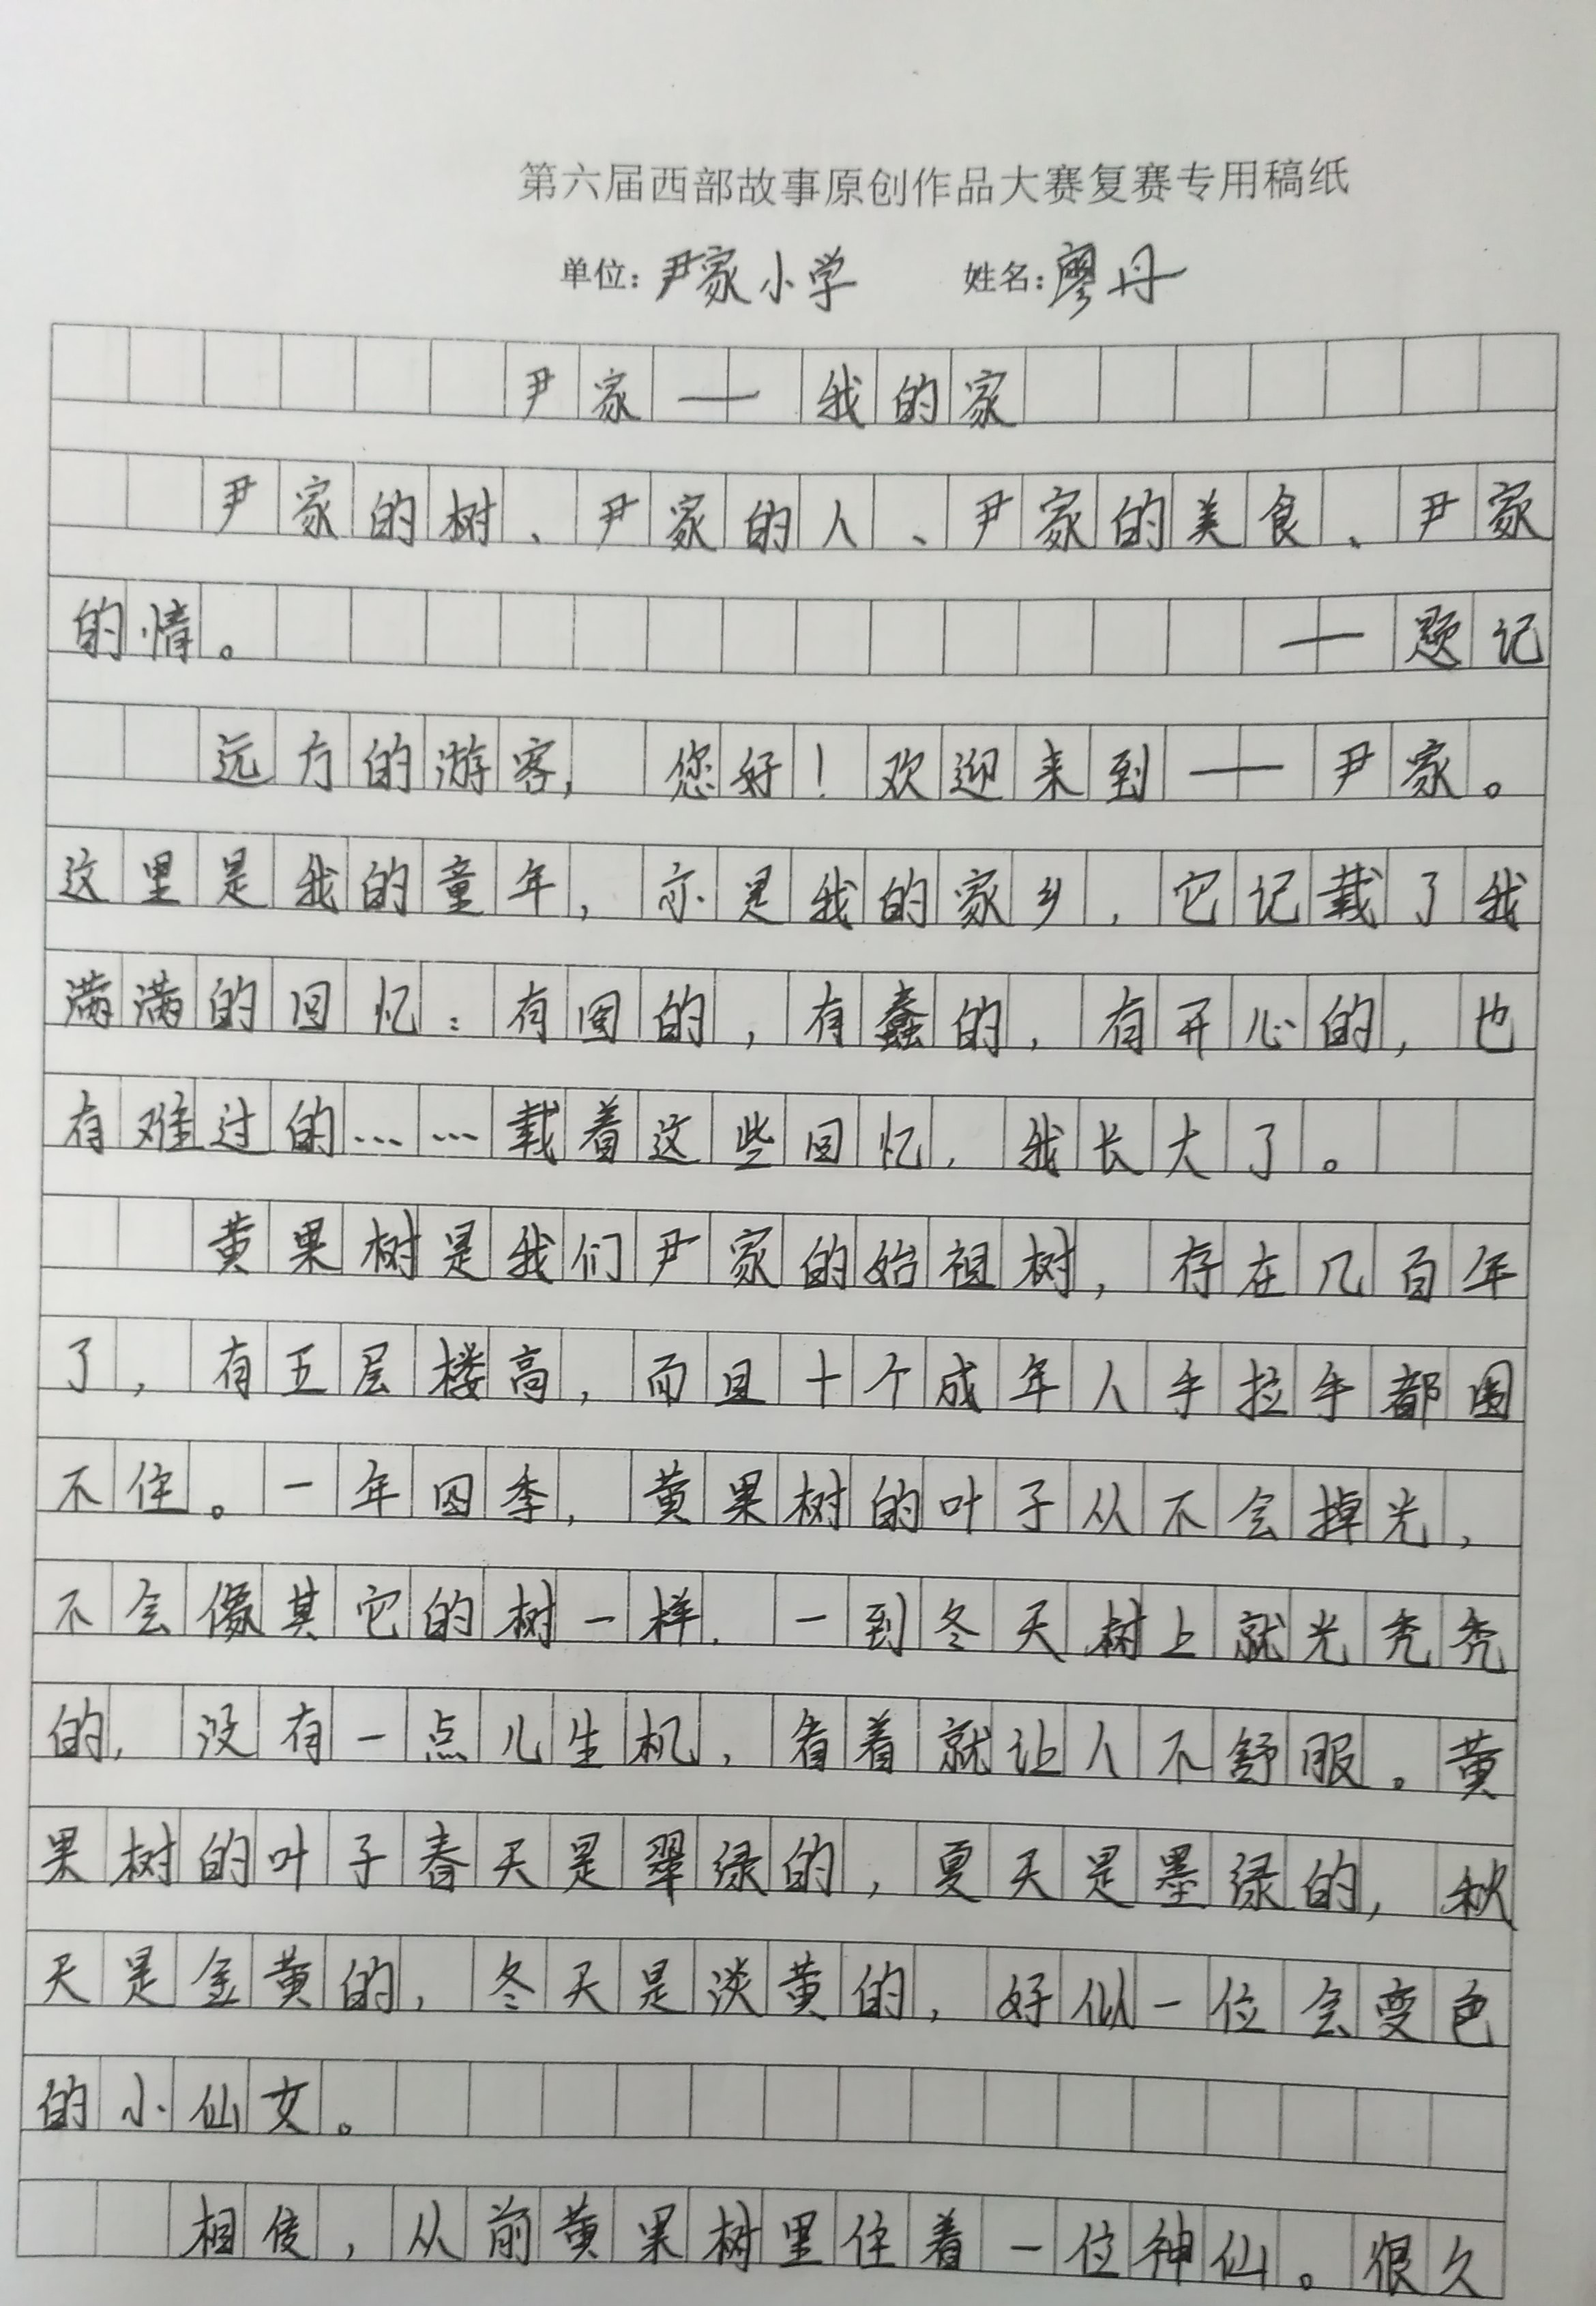 第六届西部故事原创作品大赛复赛专用稿纸
单位：尹家小学 姓名：廖丹
尹家——我的家
尹家的树、尹家的人、尹家的美食、尹家
的情。 ——题记
远方的游客，您好！欢迎来到——尹家。
这里是我的童年，亦是我的家乡，它记载了我
满满的回忆：有囧的，有蠢的，有开心的，也
有难过的……载着这些回忆，我长大了。
黄果树是我们尹家的始祖树，存在几百年
了，有五层楼高，而且十个成年人手拉手都围
不住。一年四季，黄果树的叶子从不会掉光，
不会像其它的树一样，一到冬天树上就光秃秃
的，没有一点儿生机，看着就让人不舒服。黄
果树的叶子春天是翠绿的，夏天是墨绿的，秋
天是金黄的，冬天是淡黄的，好似一位会变色
的小仙女。
相传，从前黄果树里住着一位神仙。很久